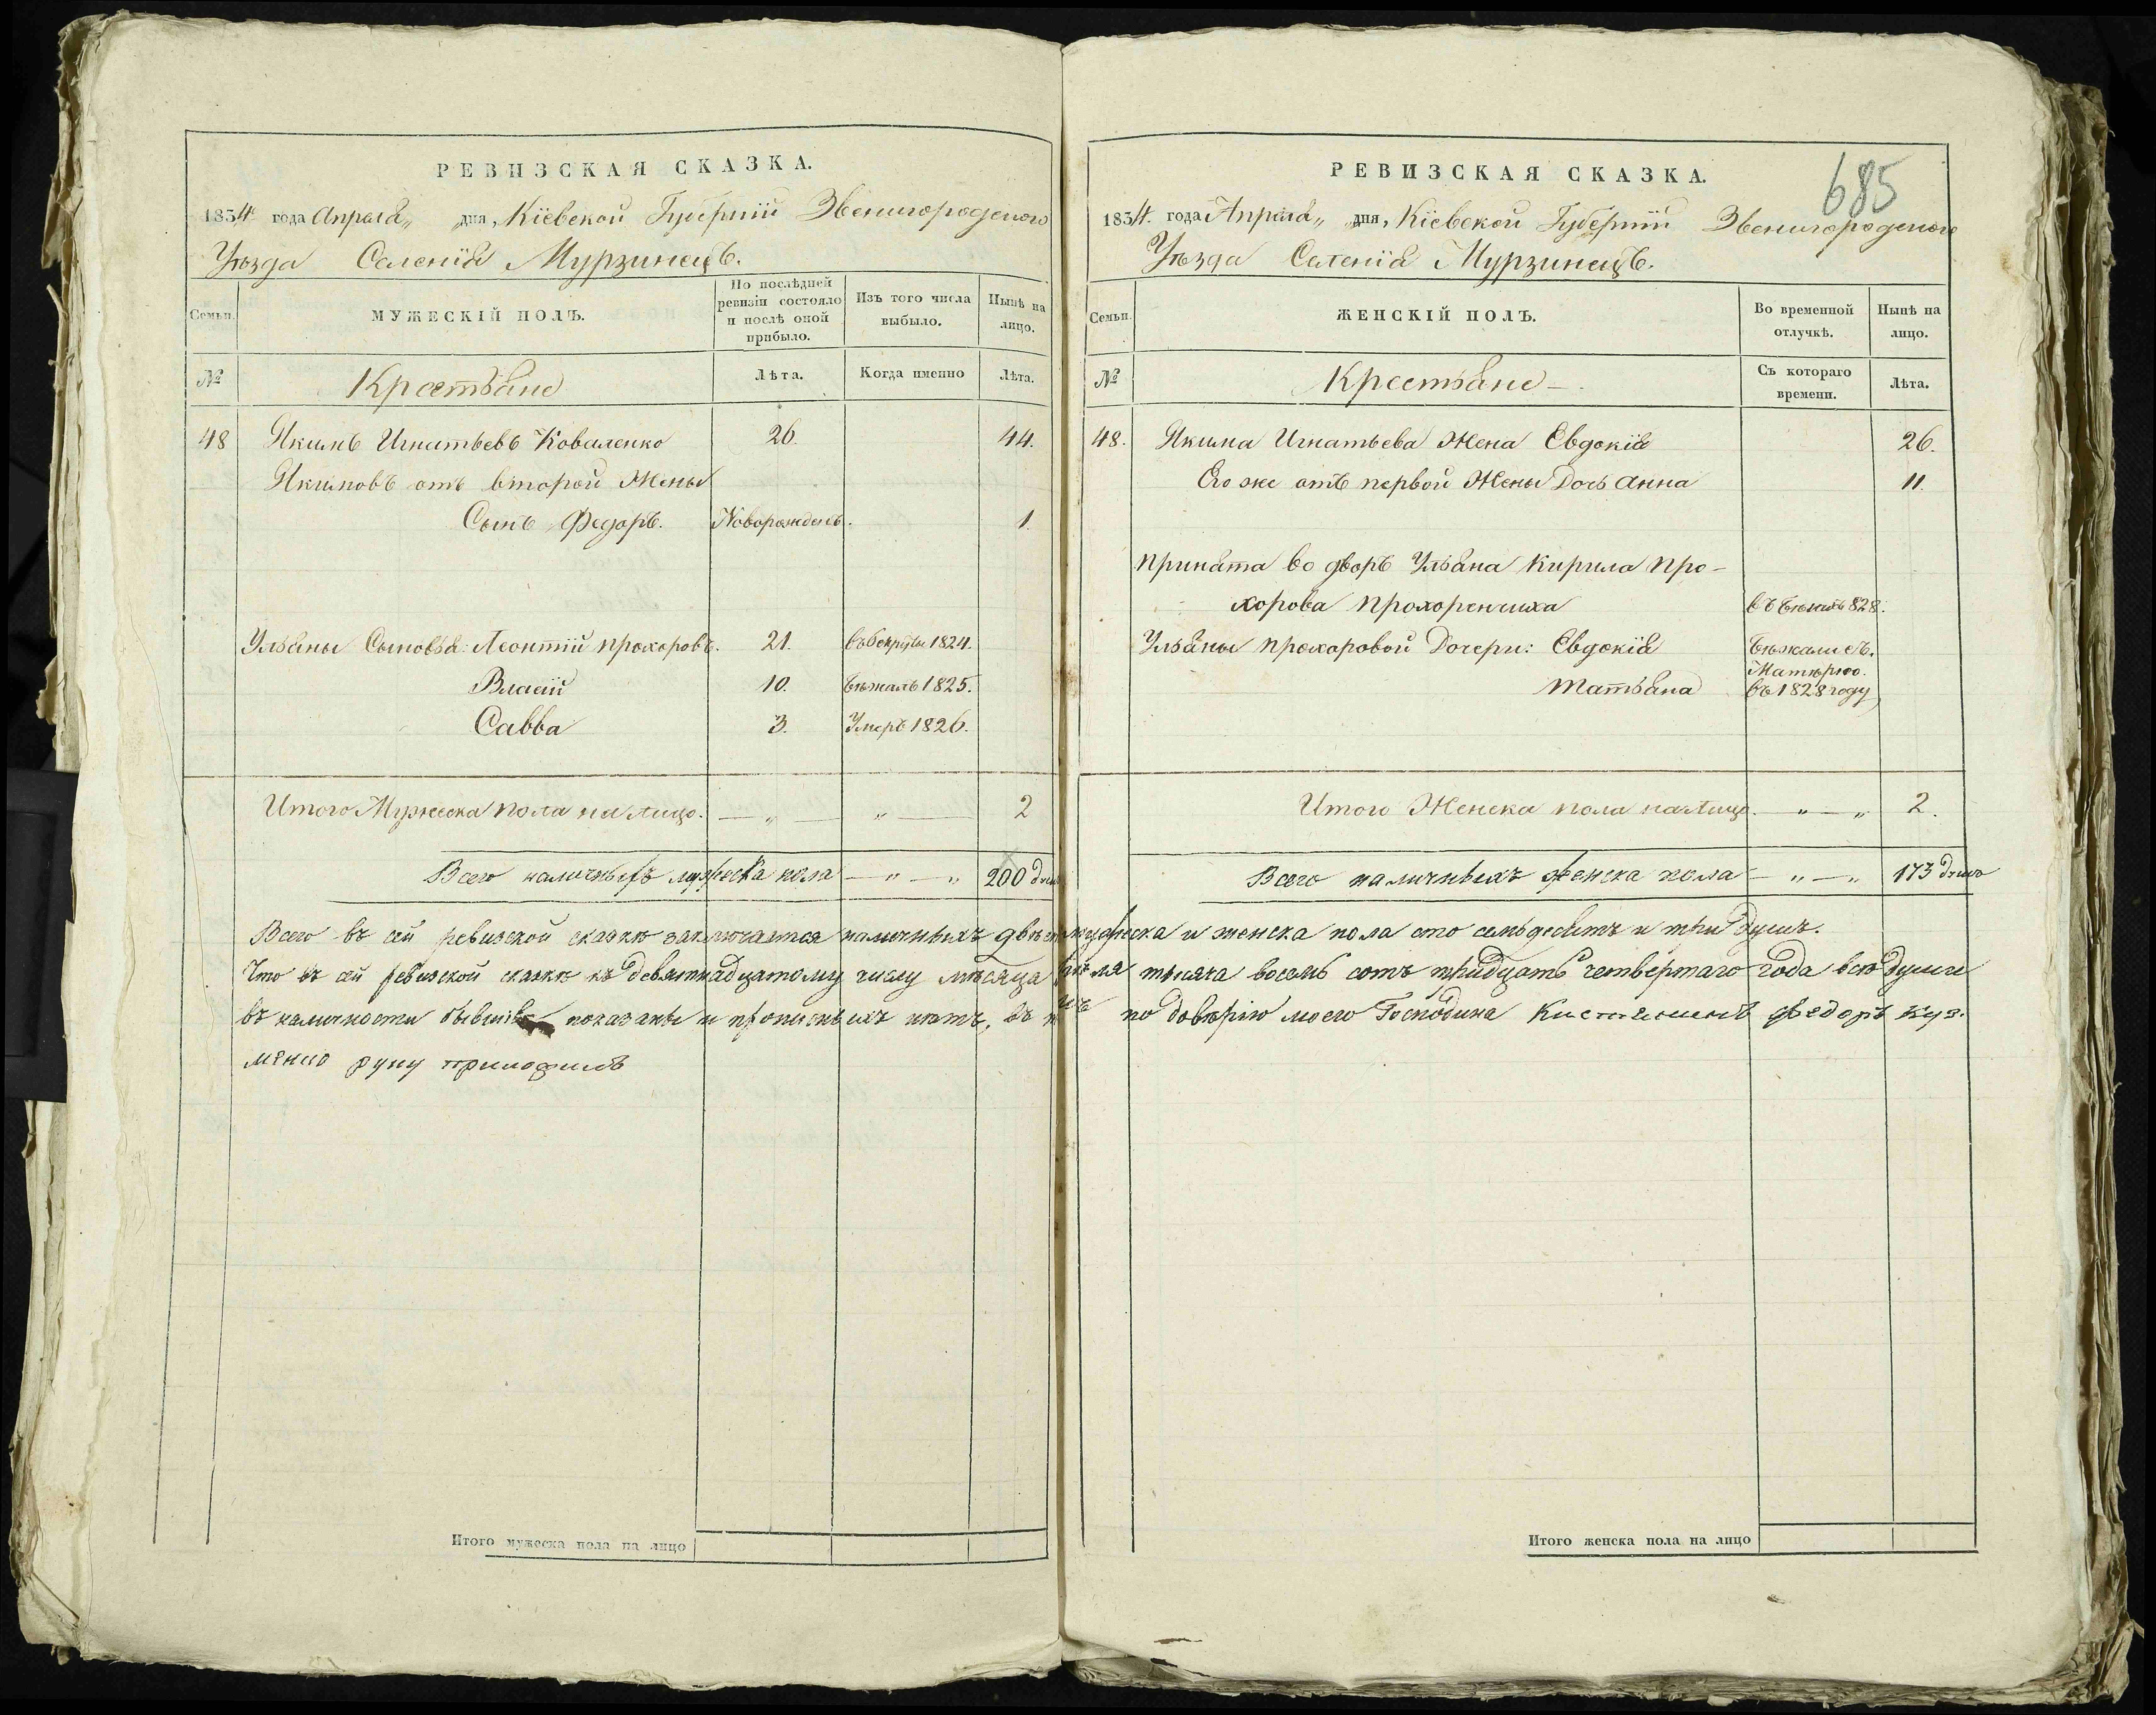 РЕВИЗСКАЯ СКАЗКА.
1834 года Апреля „ „ дня, Кіевской Губерніи Звенигородскаго
Уѣзда Селенія Мурзинецъ.
Семьи.
МУЖЕСКІЙ ПОЛЪ.
По послѣдней ревизіи состояло и послѣ оной прибыло.
Изъ того числа выбыло.
Нынѣ на лицо.
№
Крестьяне
Лѣта.
Когда именно
Лѣта.
48 Якимъ Игнатьевъ Коваленко 26. 44.
Якимовъ отъ второй жены
Сынъ Федоръ. Новорожденъ. 1.
Ульяны Сыновья: Леонтій Прохоровъ. 21. 1824.
Власій 10. бѣжалъ 1825.
Савва 3. Умеръ 1826.
Итого Мужеска пола на лицо. — „ — „ — 2
Всего наличныхъ мужеска пола — „ — „ 200 душъ
РЕВИЗСКАЯ СКАЗКА.
685
1834. года Апреля „ „ дня, Кіевской Губерніи Звенигородскаго
Уѣзда Селенія Мурзинецъ.
Семьи.
ЖЕНСКІЙ ПОЛЪ.
Во временной отлучкѣ.
Нынѣ на лицо.
№
Крестьяне —.
Съ котораго времени.
Лѣта.
48. Якима Игнатьева Жена Евдокія 26.
Его же отъ первой Жены Дочь Анна 11.
Принята во дворъ Ульяна Кирила Про-
хорова Прохоренчиха въ бѣгахъ 828.
Ульяны Прохоровой Дочери: Евдокія бѣжали съ.
Матѣрю.
Татьяна въ 1828 году
Итого Женска пола на лицо. — „ — „ 2.
Всего наличныхъ женска пола — „ — „ 173 души
Всего въ сей ревизской сказкѣ заключается наличныхъ двѣсти мужеска и женска пола сто семьдесятъ и три душъ.
Что въ сей ревизской сказкѣ къ девятнадцатому числу мѣсяца апреля тысяча восемь сотъ тридцать четвертаго года всѣ души
въ наличности бывшія показаны и прописныхъ нѣтъ, въ по довѣрію моего Господина Федоръ Куз.
менко руку приложилъ
Итого мужеска пола на лицо
Итого женска пола на лицо